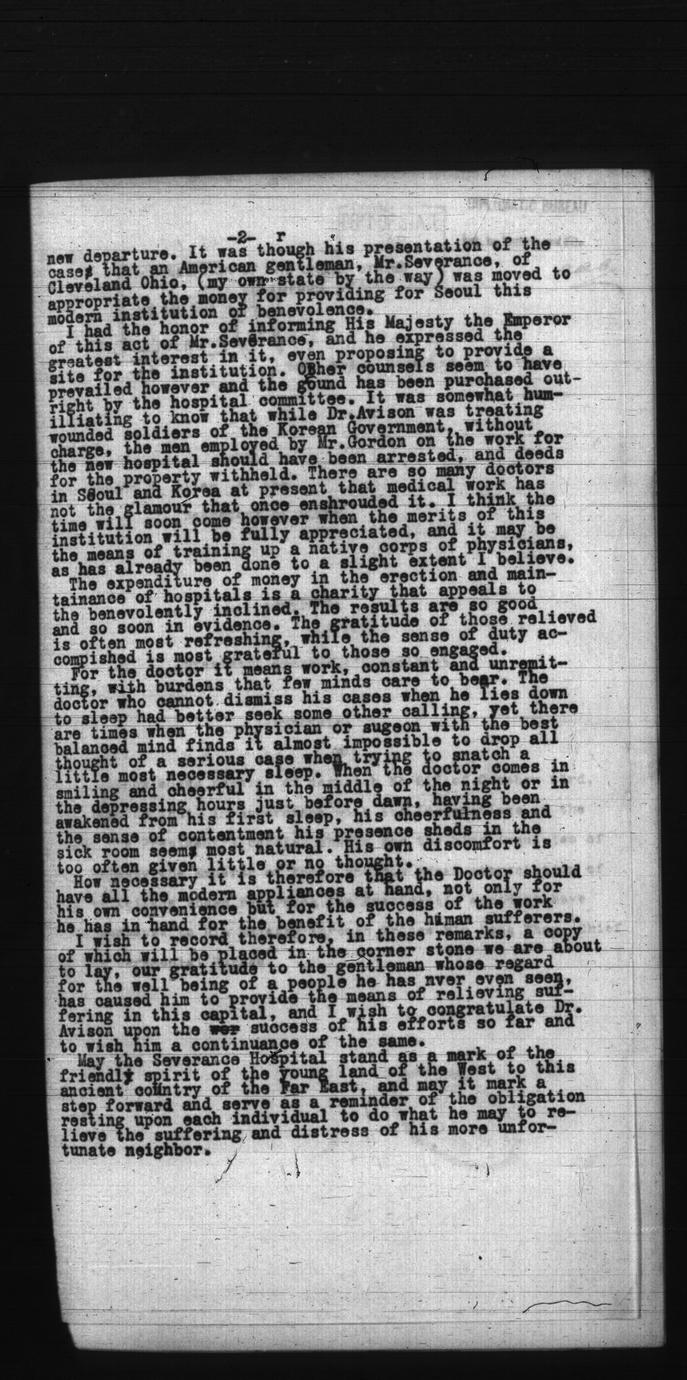 -2- r
new departure. It was though his presentation of the
cases that an American gentleman, Mr.Severance, of
Cleveland Ohio, (my own state by the way) was moved to
appropriate the money for providing for Seoul this
modern institution of benevolence.
I had the honor of informing His Majesty the Emperor
of this act of Mr.Severance, and he expressed the
greatest interest in it, even proposing to provide a
site for the institution. Other counsels seem to have
prevailed however and the gound has been purchased out-
right by the hospital committee. It was somewhat hum-
illiating to know that while Dr.Avison was treating
wounded soldiers of the Korean Government, without
charge, the men employed by Mr.Gordon on the work for
the new hospital should have been arrested, and deeds
for the property withheld. There are so many doctors
in Seoul and Korea at present that medical work has
not the glamour that once enshrouded it. I think the
time will soon come however when the merits of this
institution will be fully appreciated, and it may be
the means of training up a native corps of physicians,
as has already been done to a slight extent I believe.
The expenditure of money in the erection and main-
tainance of hospitals is a charity that appeals to
the benevolently inclined. The results are so good
and so soon in evidence. The gratitude of those relieved
is often most refreshing, while the sense of duty ac-
compished is most grateful to those so engaged.
For the doctor it means work, constant and unremit-
ting, with burdens that few minds care to bear. The
doctor who cannot dismiss his cases when he lies down
to sleep had better seek some other calling, yet there
are times when the physician or sugeon with the best
balanced mind finds it almost impossible to drop all
thought of a serious case when trying to snatch a
little most necessary sleep. When the doctor comes in
smiling and cheerful in the middle of the night or in
the depressing hours just before dawn, having been
awakened from his first sleep, his cheerfulness and
the sense of contentment his presence sheds in the
sick room seems most natural. His own discomfort is
too often given little or no thought.
How necessary it is therefore that the Doctor should
have all the modern appliances at hand, not only for
his own convenience but for the success of the work
he has in hand for the benefit of the human sufferers.
I wish to record therefore, in these remarks, a copy
of which will be placed in the corner stone we are about
to lay, our gratitude to the gentleman whose regard
for the well being of a people he has nver even seen,
has caused him to provide the means of relieving suf-
fering in this capital, and I wish to congratulate Dr.
Avison upon the success of his efforts so far and
to wish him a continuance of the same.
May the Severance Hospital stand as a mark of the
friendly spirit of the young land of the West to this
ancient country of the Far East, and may it mark a
step forward and serve as a reminder of the obligation
resting upon each individual to do what he may to re-
lieve the suffering and distress of his more unfor-
tunate neighbor.